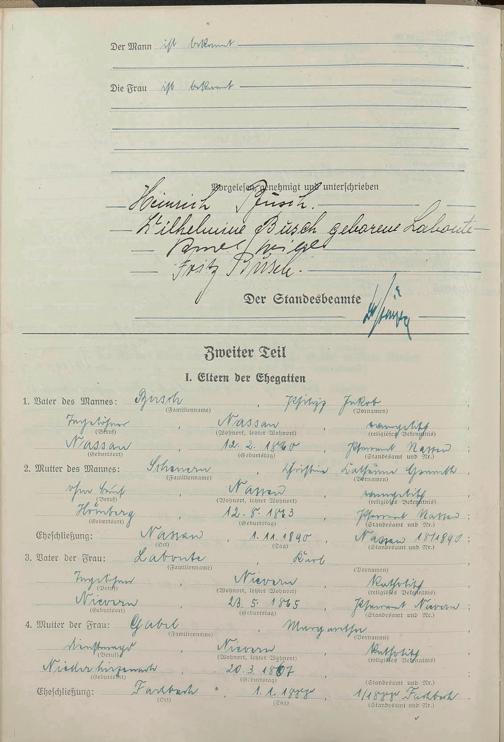 Der Mann ist bekannt
Die Frau ist bekannt
Vorgelesen, genehmigt und unterschrieben
Heinrich Busch.
Wilhelmine Busch geborene Labonte
Fritz Busch.
Der Standesbeamte
Zweiter Teil
I. Eltern der Ehegatten
1. Vater des Mannes: Busch, Philipp Jakob
(Familienname) (Vornamen)
Tagelöhner, Nassau, evangelisch
(Beruf) (Wohnort, letzter Wohnort) (religiöses Bekenntnis)
Nassau, Pfarramt Nassau;
(Geburtsort) (Geburtstag) (Standesamt und Nr.)
2. Mutter des Mannes: Christine
(Familienname) (Vornamen)
ohne Beruf, Nassau, evangelisch
(Beruf) (Wohnort, letzter Wohnort) (religiöses Bekenntnis)
Hömberg, Pfarramt Nassau;
(Geburtsort) (Geburtstag) (Standesamt und Nr.)
Eheschließung: Nassau, 1.11.1890, Nassau 18/1890;
(Ort) (Tag) (Standesamt und Nr.)
3. Vater der Frau: Labonte, Karl
(Familienname) (Vornamen)
Tagelöhner, Nievern, katholisch
(Beruf) (Wohnort, letzter Wohnort) (religiöses Bekenntnis)
Nievern, 23.5.1865, Pfarramt Nievern;
(Geburtsort) (Geburtstag) (Standesamt und Nr.)
4. Mutter der Frau: Gabel, Margarethe
(Familienname) (Vornamen)
Dienstmagd, Nievern, katholisch
(Beruf) (Wohnort, letzter Wohnort) (religiöses Bekenntnis)
20.3.1867
(Geburtsort) (Geburtstag) (Standesamt und Nr.)
Eheschließung: Fachbach, 1.1.1888, 1/1888 Fachbach;
(Ort) (Tag) (Standesamt und Nr.)